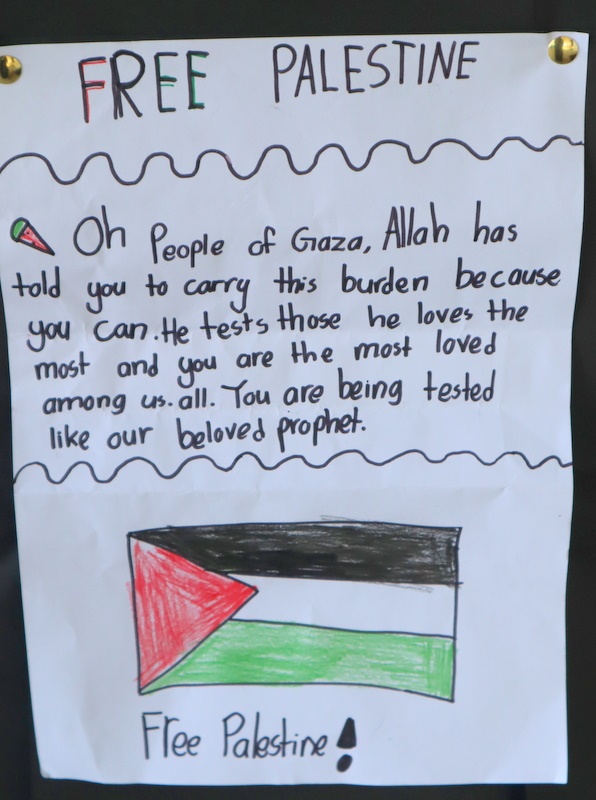 FREE PALESTINE
Oh People of Gaza, Allah has
told you to carry this burden because
you can. He tests those he loves the
most and you are the most loved
among us. all. You are being tested
like our beloved prophet.
Free Palestine!